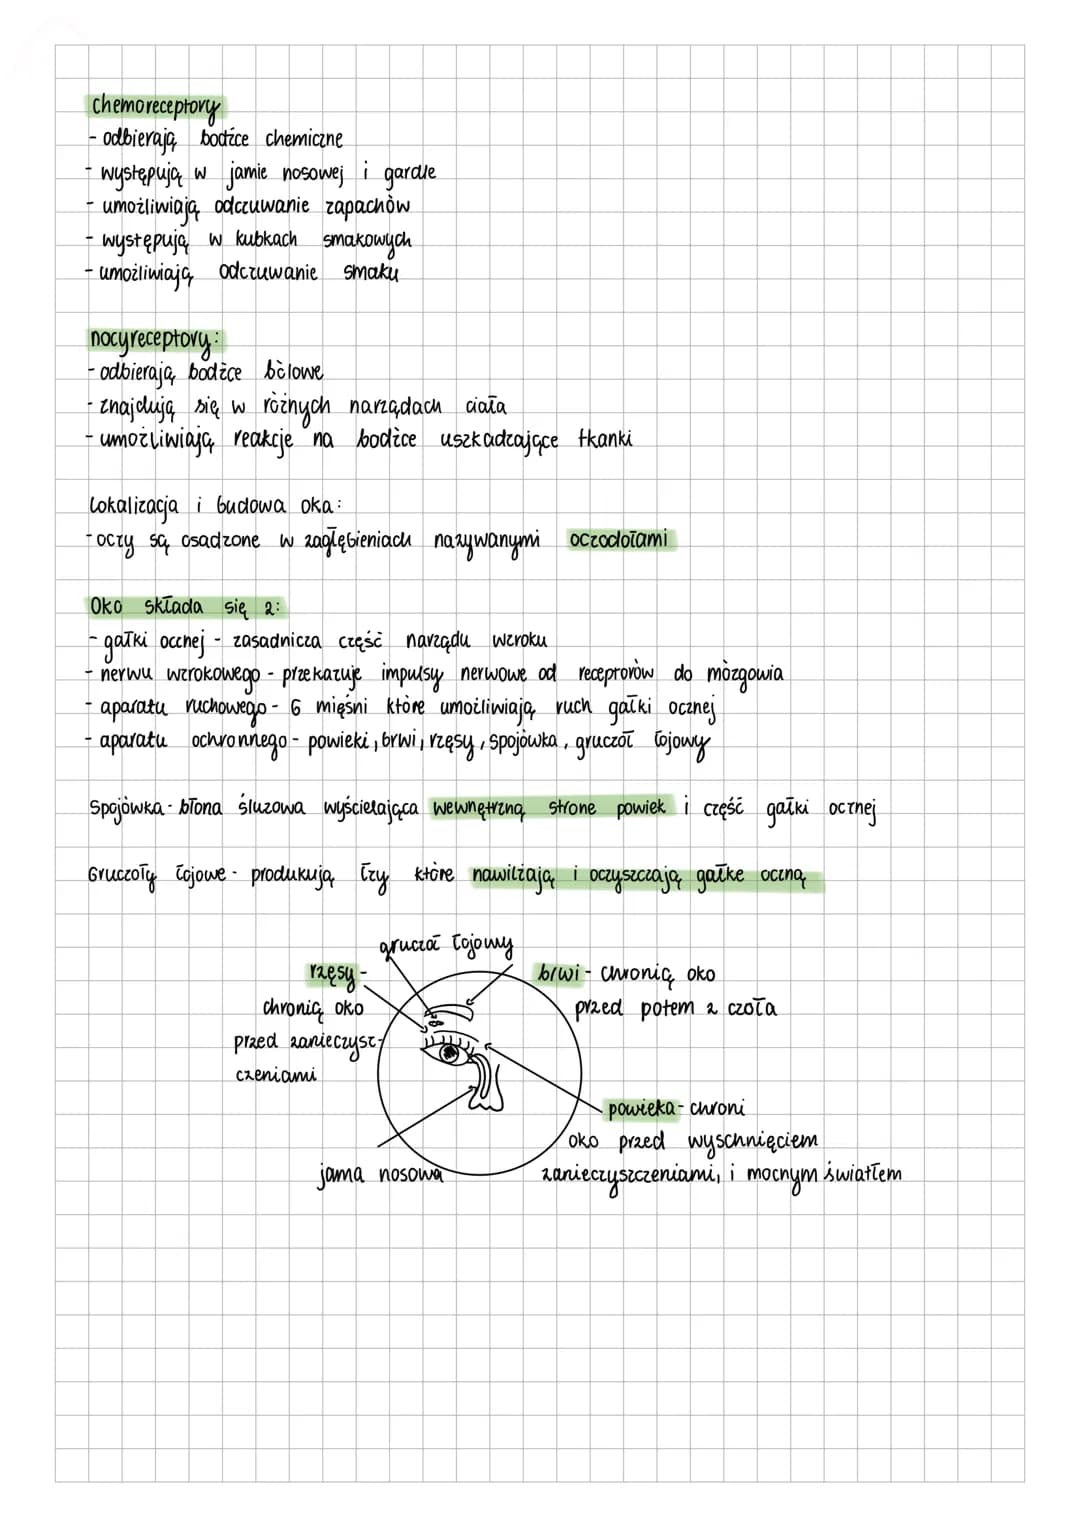 chemoreceptory
- odbierają bodźce chemiczne
- występują w jamie nosowej i gardle
- umożliwiają odczuwanie zapachów
- występują w kubkach smakowych
- umożliwiają odczuwanie smaku
nocyreceptory:
- odbierają bodźce bólowe
- znajdują się w różnych narządach ciała
- umożliwiają reakcje na bodźce uszkadzające tkanki
Lokalizacja i budowa oka:
- oczy są osadzone w zagłębieniach nazywanymi oczodołami
Oko składa się z:
- gałki ocznej - zasadnicza część narządu wzroku
- nerwu wzrokowego - przekazuje impulsy nerwowe od receptorów do mózgowia
- aparatu ruchowego - 6 mięśni które umożliwiają ruch gałki ocznej
- aparatu ochronnego - powieki, brwi, rzęsy, spojówka, gruczoł łojowy
Spojówka - błona śluzowa wyściełająca wewnętrzną strone powiek i część gałki ocznej
Gruczoły łojowe - produkują łzy które nawilżają i oczyszczają gałke oczną
gruczoł łojowy
rzęsy -
chronią oko
przed zanieczysz-
czeniami
brwi - chronią oko
przed potem z czoła
powieka - chroni
oko przed wyschnięciem
zanieczyszczeniami, i mocnym światłem
jama nosowa